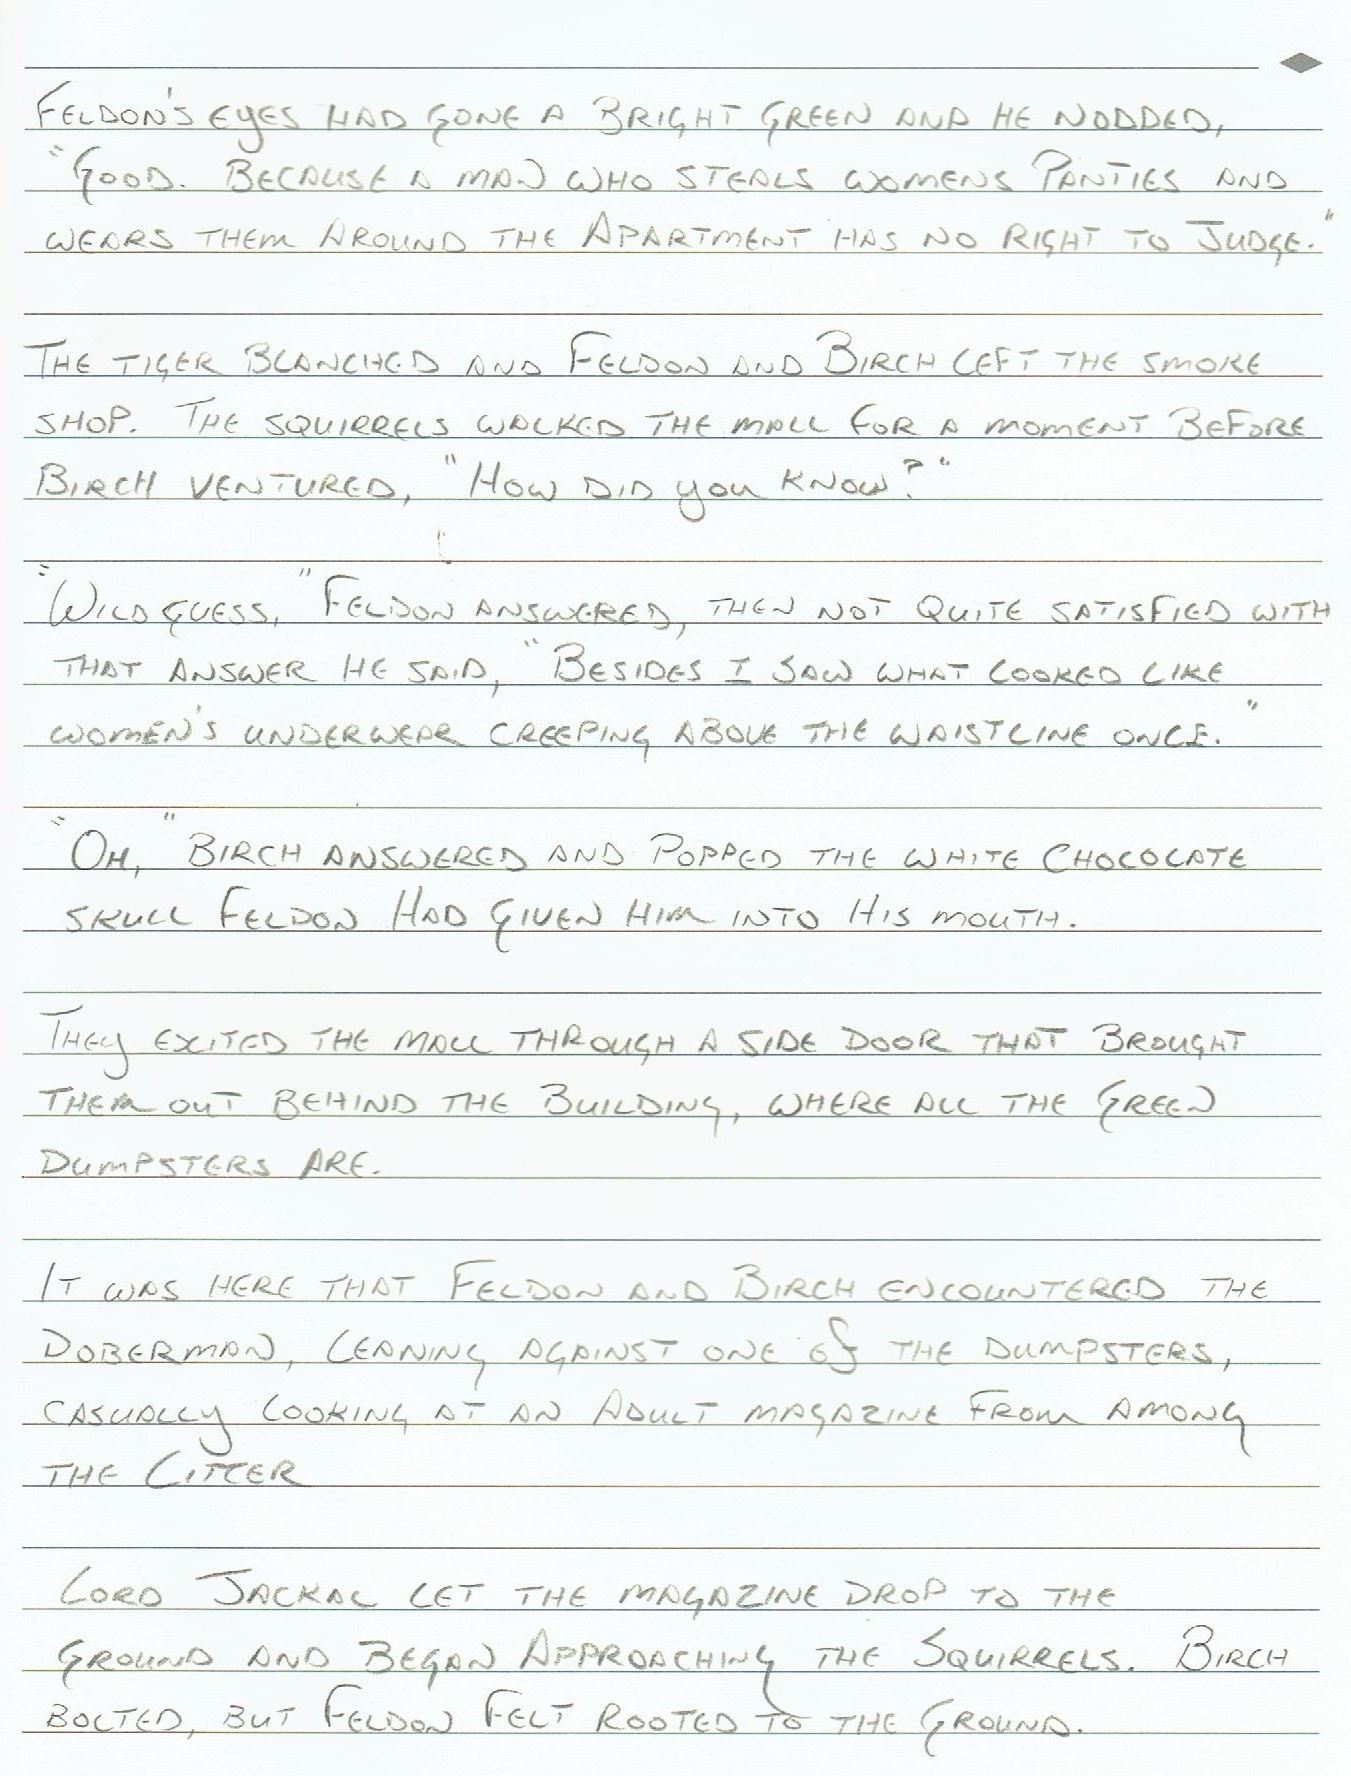 Feldon's eyes had gone a bright green and he nodded,
"Good. Because a man who steals womens panties and
wears them around the apartment has no right to judge."
The tiger blanched and Feldon and Birch left the smoke
shop. The squirrels walked the mall for a moment before
Birch ventured, "How did you know?"
"Wild guess," Feldon answered, then not quite satisfied with
that answer he said, "Besides I saw what looked like
women's underwear creeping above the waistline once."
"Oh," Birch answered and popped the white chocolate
skull Feldon had given him into his mouth.
They exited the mall through a side door that brought
them out behind the building, where all the green
dumpsters are.
It was here that Feldon and Birch encountered the
Doberman, leaning against one of the dumpsters,
casually looking at an adult magazine from among
the litter
Lord Jackal let the magazine drop to the
ground and began approaching the squirrels. Birch
bolted, but Feldon felt rooted to the ground.